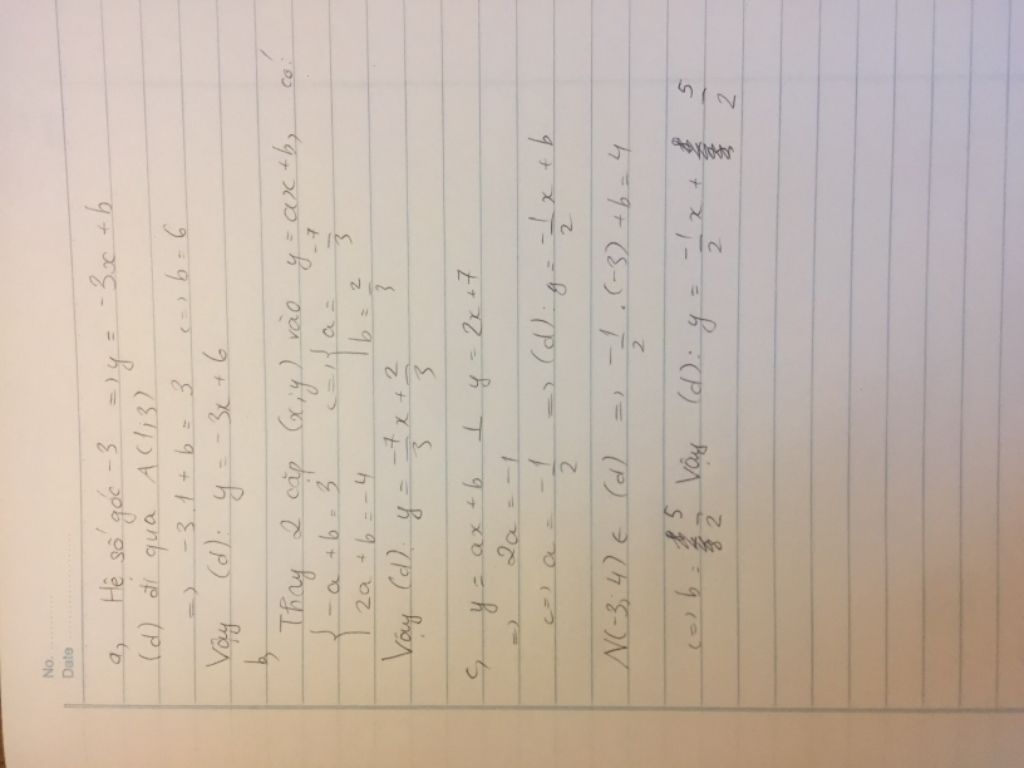 No. ............
Date ....................
a, Hệ số góc -3 => y = -3x + b
(d) đi qua A(1;3)
=> -3.1 + b = 3 <=> b = 6
Vậy (d): y = -3x + 6
b,
Thay 2 cặp (x;y) vào y = ax + b, có:
{ -a + b = 3 <=> { a = -7/3
2a + b = -4 b = 2/3
Vậy (d): y = -7/3 x + 2/3
c, y = ax + b ⊥ y = 2x + 7
=> 2a = -1
<=> a = -1/2 => (d): y = -1/2 x + b
N(-3;4) ∈ (d) => -1/2 . (-3) + b = 4
<=> b = 5/2 Vậy (d): y = -1/2 x + 5/2